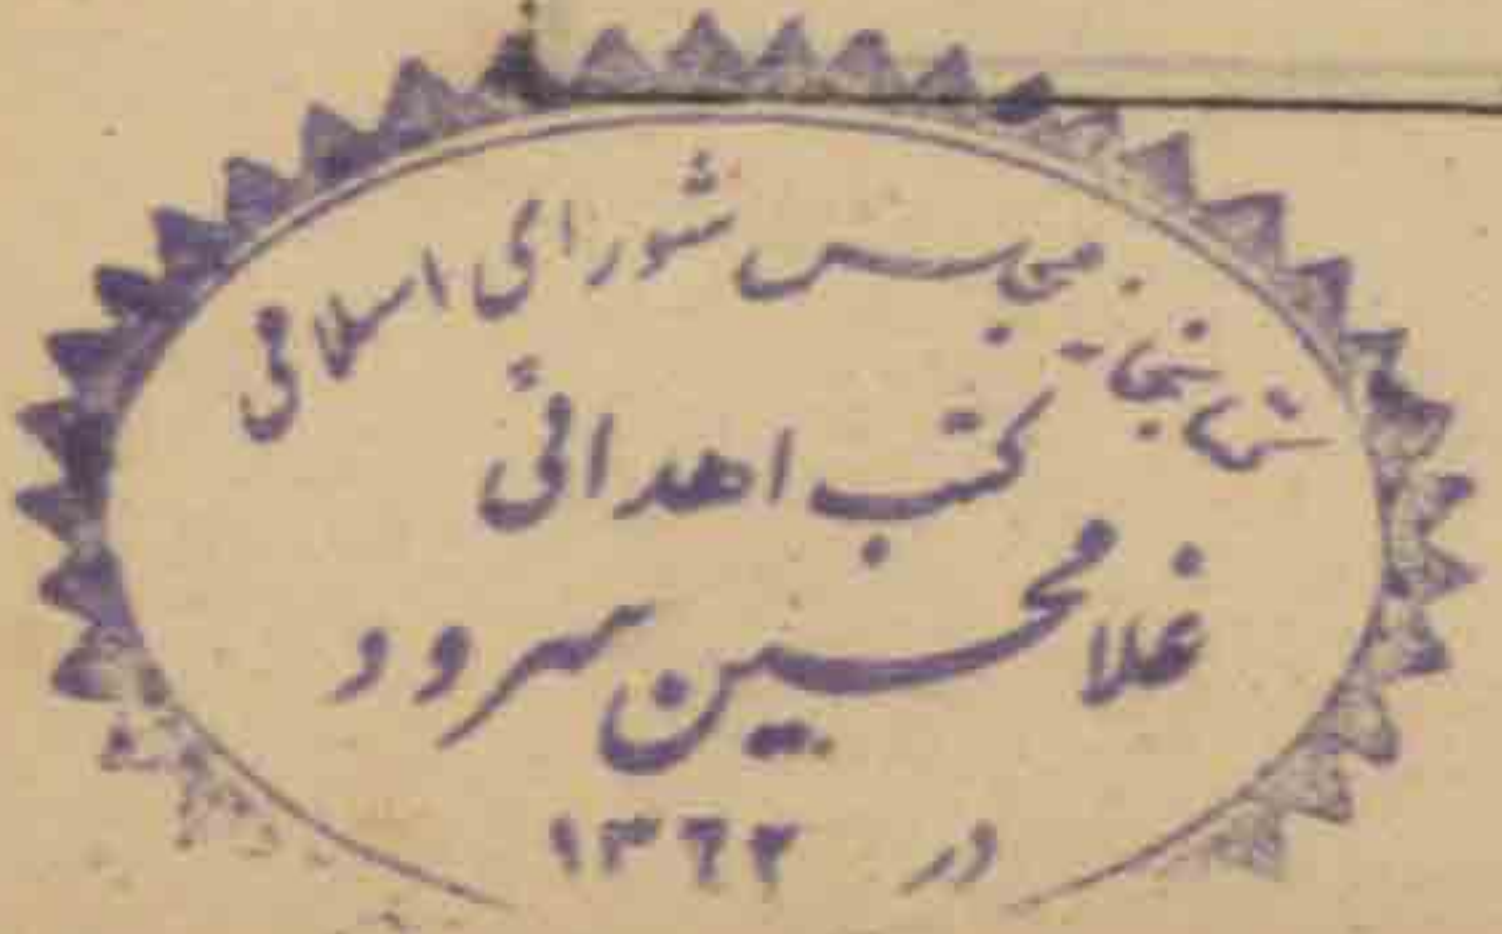 کتابخانه مجلس شورائی اسلامی
کتب اهدائی
غلامحسین سرود
در ۱۳۶۲